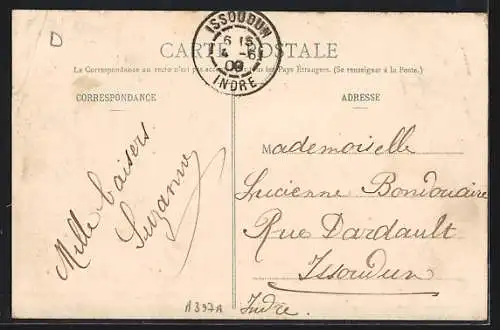 D
ISSOUDUN
6 15
4 -6
09
INDRE
CARTE POSTALE
La Correspondance au recto n'est pas acceptée par tous les Pays Étrangers. (Se renseigner à la Poste.)
CORRESPONDANCE
ADRESSE
Mille baisers.
Suzanne
Mademoiselle
Lucienne Bondouaire
Rue Dardault
Issoudun
Indre.
A397A